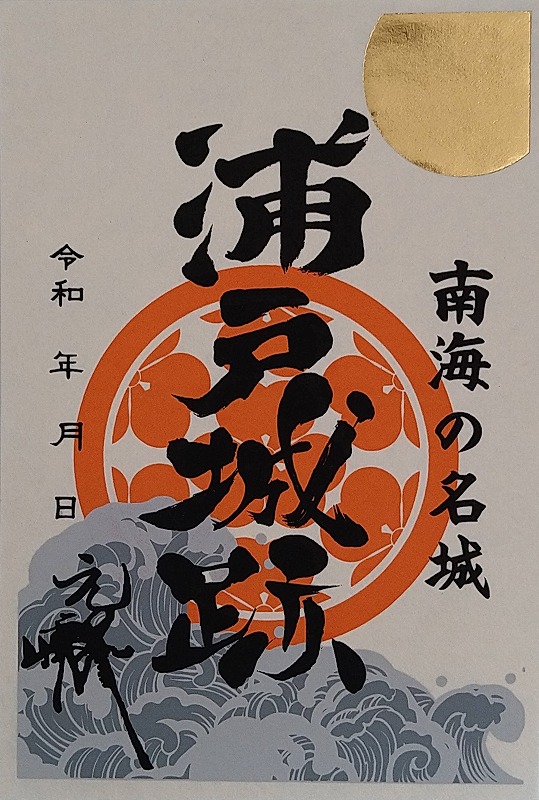 南海の名城
浦戸城跡
令和 年 月 日